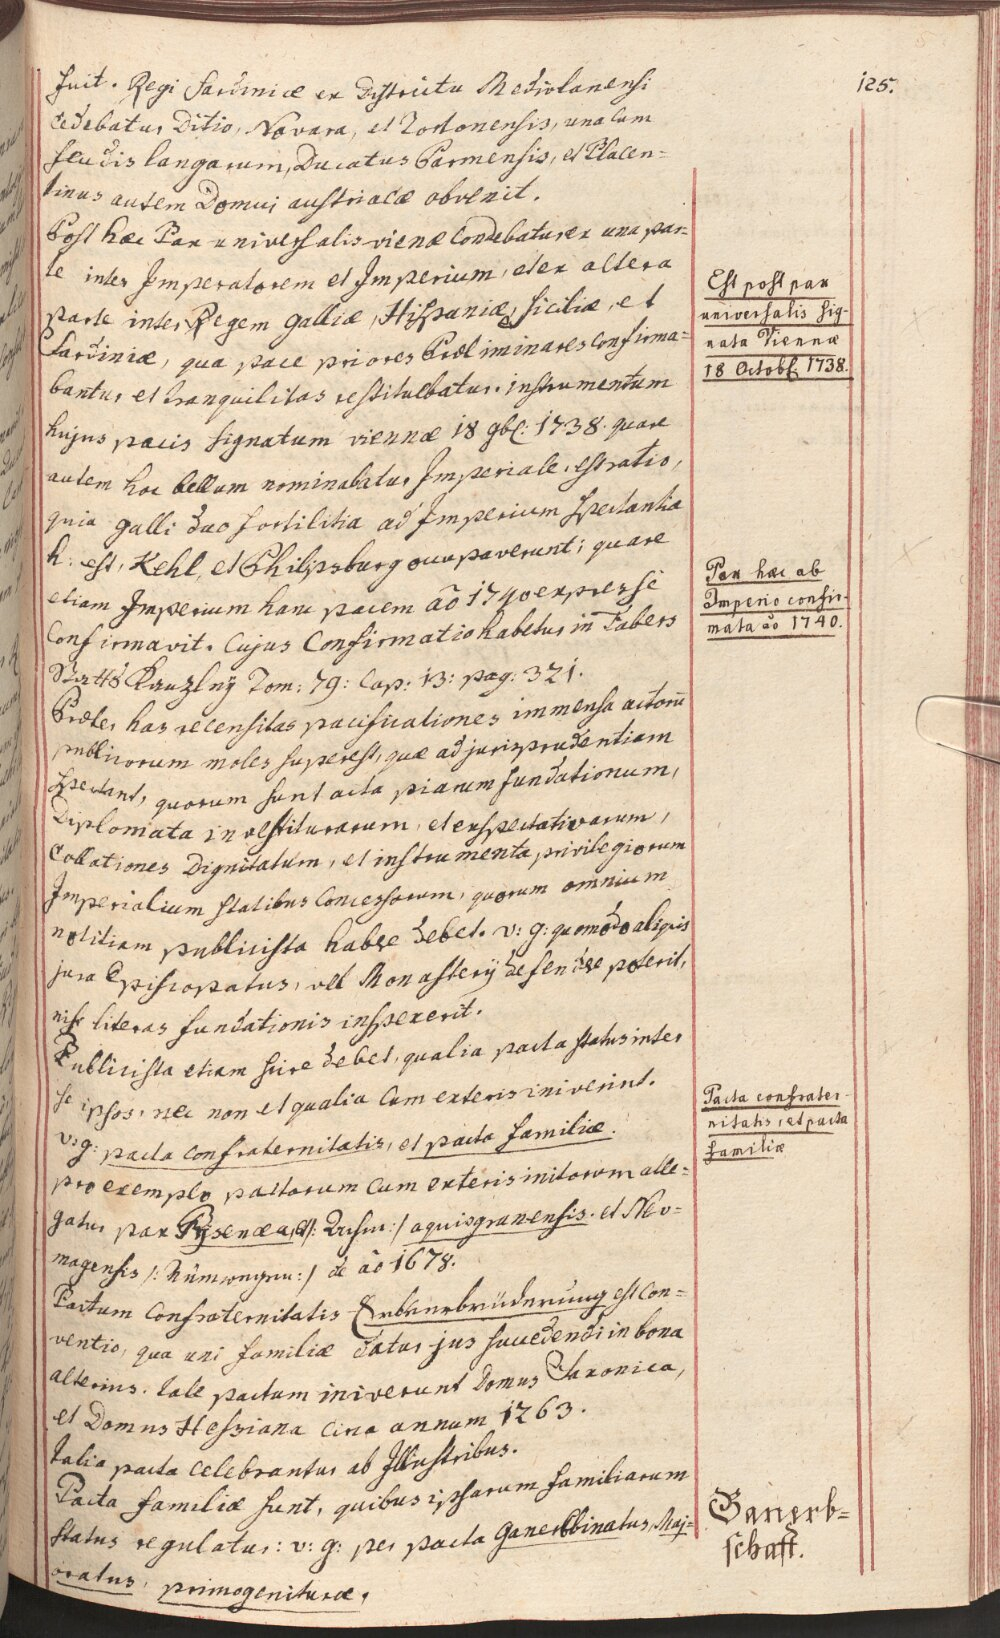 125.
fuit. Regi Sardiniæ ex Districtu Mediolanensi
cedebatur Ditio, Novara, et Tortonensis, una cum
feudis langarum, Ducatus Parmensis, et Placen-
tinus autem Domui austriacæ obvenit.
Post hæc Pax universalis vienæ condebatur ex una par-
te inter Imperatorem et Imperium, et ex altera
parte inter Regem Galliæ, Hispaniæ, Siciliæ, et
Sardiniæ, qua pace priores Præliminares confirma-
bantur et tranquilitas restituebatur. instrumentum
hujus pacis signatum viennæ 18 9b: 1738. quare
autem hoc bellum nominabatur Imperiale. est ratio,
quia Galli duo fortilitia ad Imperium spectantia
h: est, Kehl, et Philipsburg occupaverunt; quare
etiam Imperium hanc pacem aõ 1740 expresse
Confirmavit. Cujus Confirmatio habetur in Fabers
Staats Kanzley Tom: 79: Cap: 13: pag: 321.
Præter has recensitas pacificationes immensa actorũ
publicorum moles superest, quæ ad jurisprudentiam
spectant, quorum sunt acta piarum fundationum,
Diplomata investiturarum, et exspectativarum,
Collationes Dignitatum, et instrumenta privilegiorum
Imperialium statibus concessorum, quorum omnium
notitiam publicista habere debet. v: g: quomodo aliquis
jura Episcopatus, vel Monasterij defendere poterit,
nisi literas fundationis inspexerit.
Publicista etiam scire debet, qualia pacta status inter
se ipsos, nec non et qualia cum exteris iniverint.
v: g: pacta confraternitatis, et pacta familiæ.
pro exemplo pactorum cum exteris initorum alle-
gatur pax aquisgranensis. et Neo-
magensis /: Nümwegen :/ de aõ 1678.
Pactum Confraternitatis Erbverbrüderung est con-
ventio, qua uni familiæ datur jus succedendi in bona
alterius. tale pactum iniverunt Domus Saxonica,
et Domus Hessiana circa annum 1263.
Talia pacta celebrantur ab Illustribus.
Pacta familiæ sunt, quibus ipsarum familiarum
status regulatur: v: g: per pacta Ganerbinatus, Maj-
oratus, primogenituræ.
Est post pax
universalis sig-
nata Viennæ
18 Octob: 1738.
Pax hæc ab
Imperio confir-
mata aõ 1740.
Pacta confrater-
nitatis, et pacta
familiæ
Ganerb-
schaft.